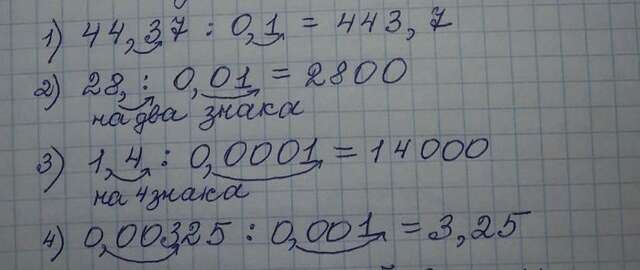 1) 44,37 : 0,1 = 443,7
2) 28, : 0,01 = 2800
на два знака
3) 1,4 : 0,0001 = 14000
на 4 знака
4) 0,00325 : 0,001 = 3,25